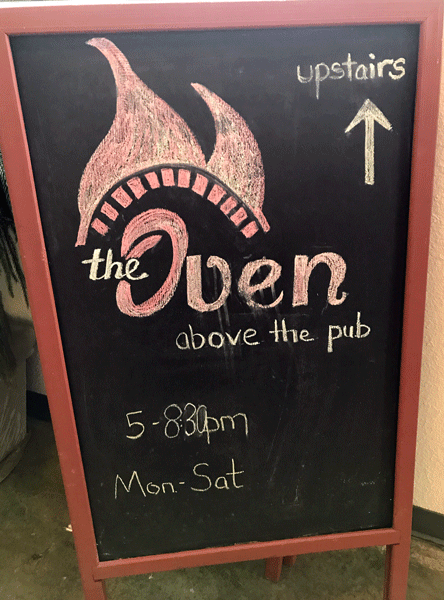 upstairs
the Oven
above the pub
5-8:30pm
Mon.-Sat